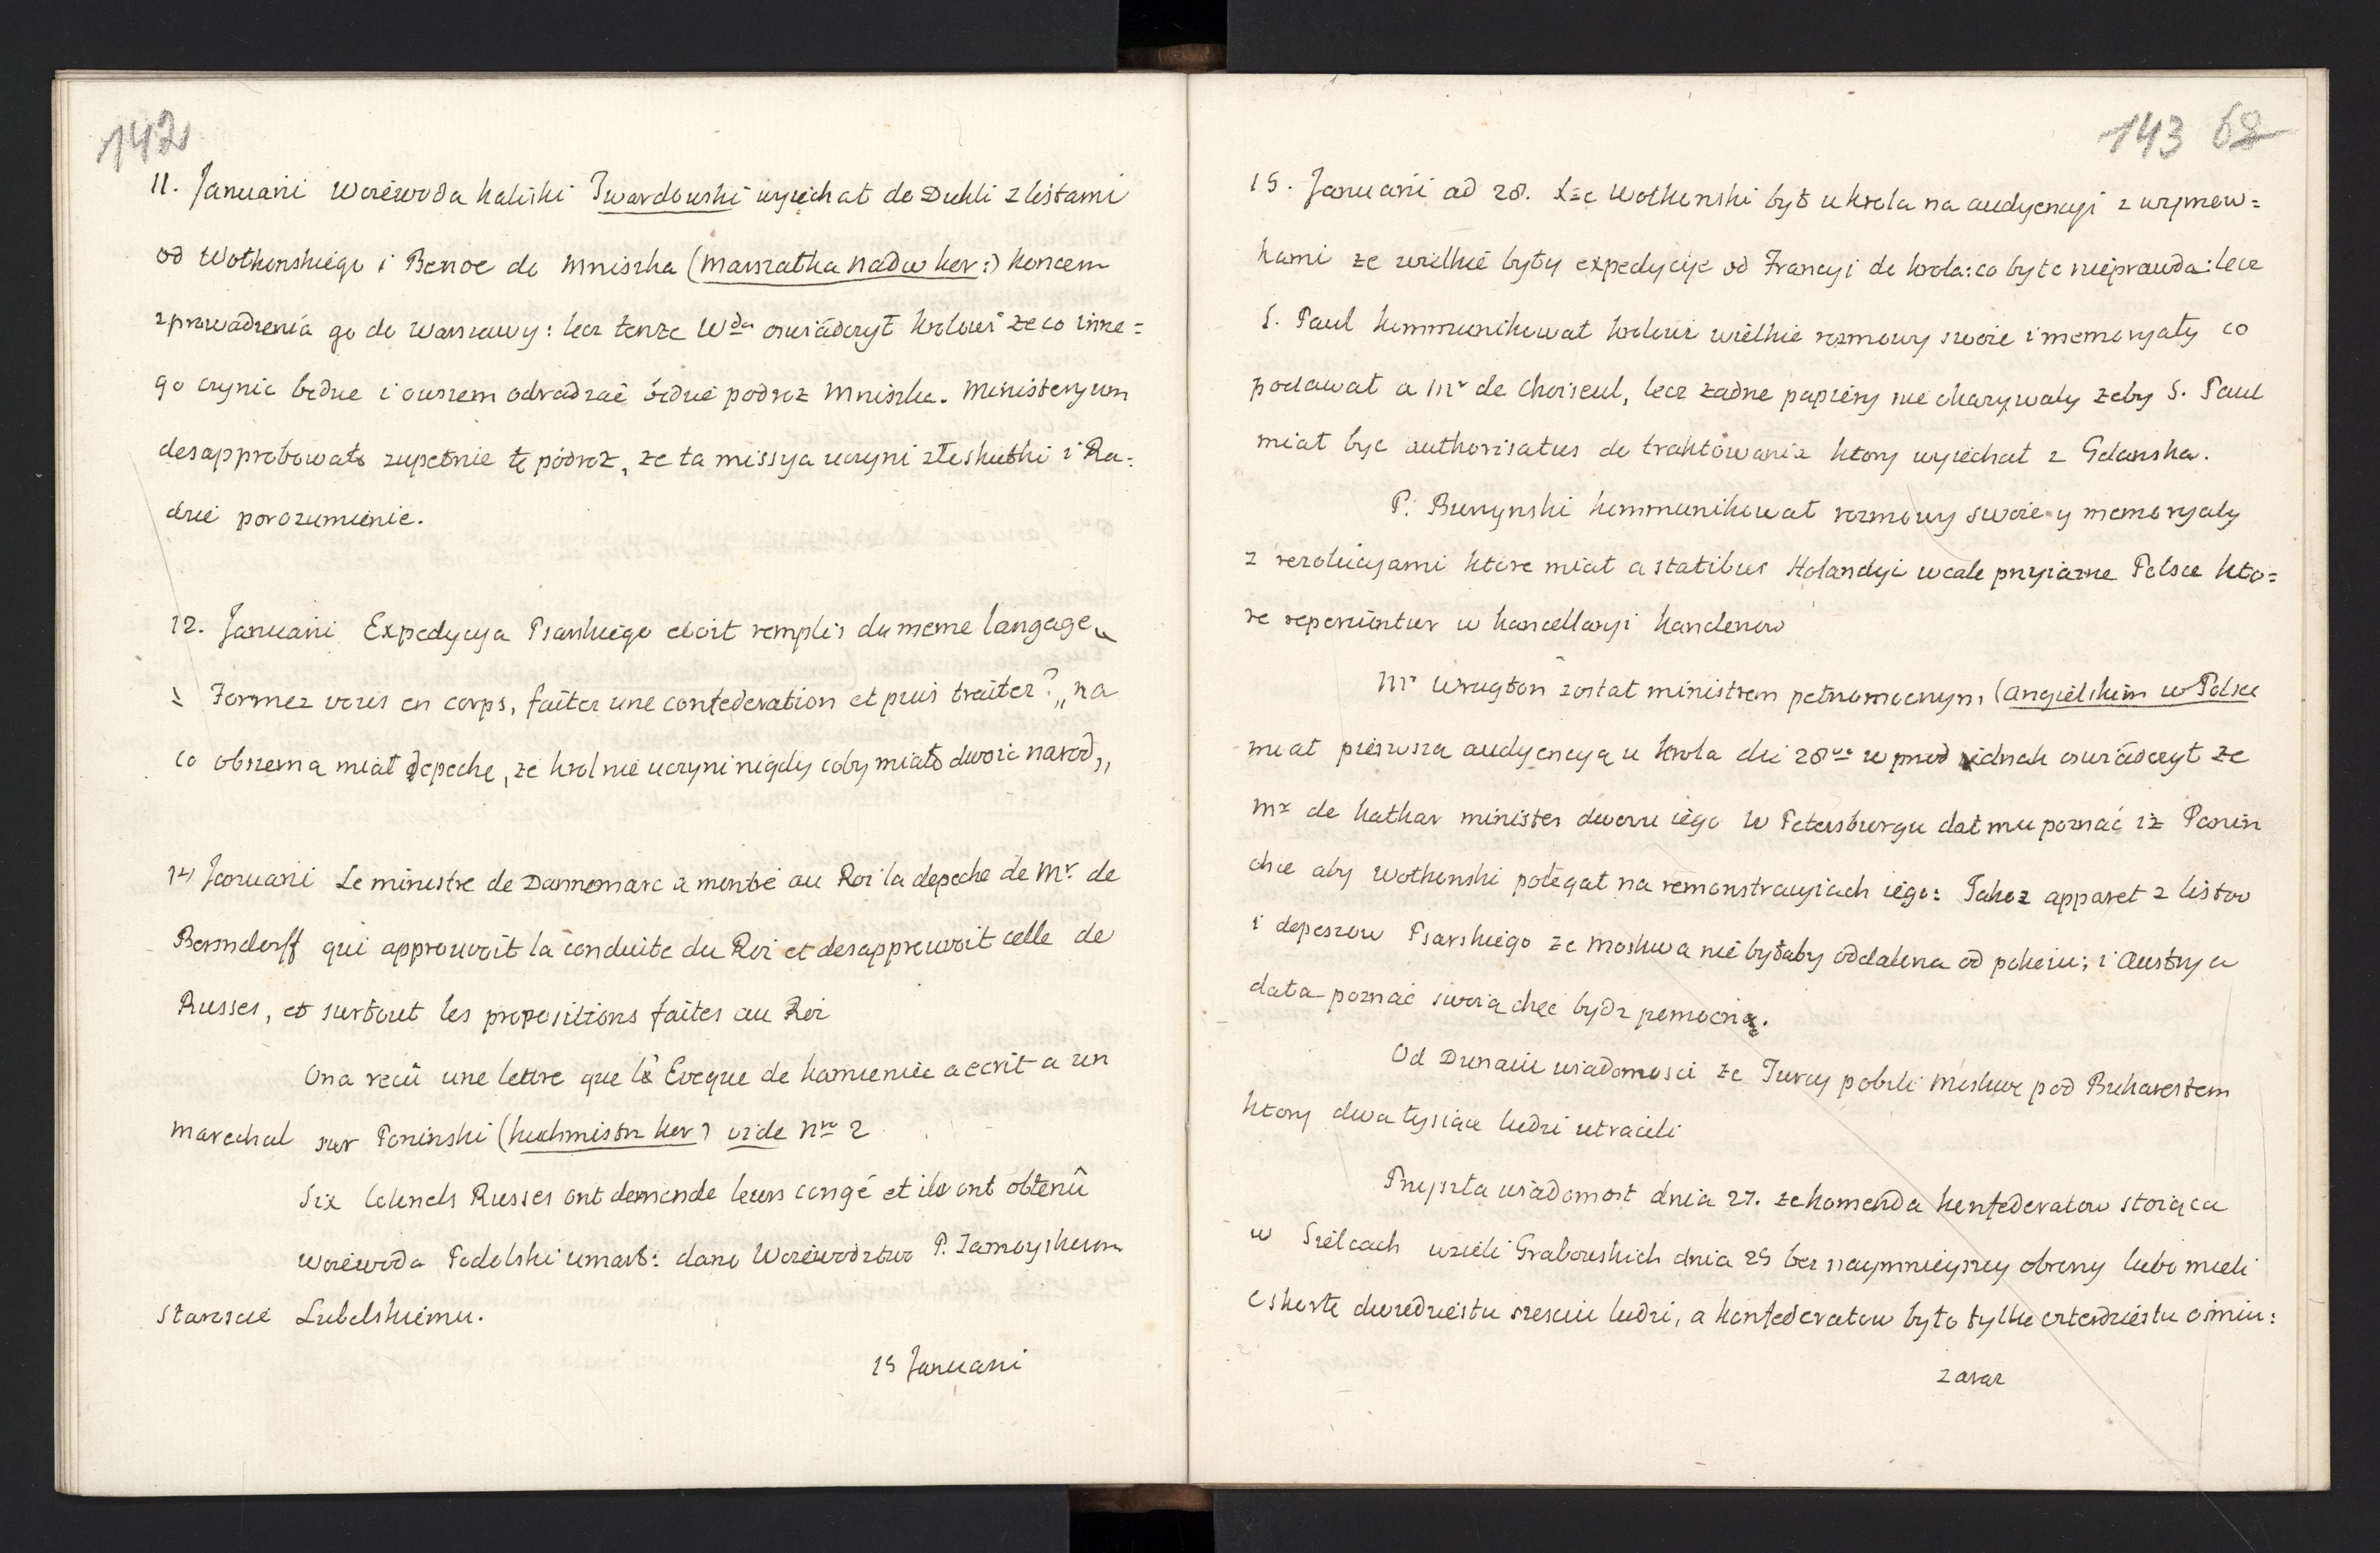 142
11. Januarii Woiewoda kaliski Twardowski wyiechał do Dukli z listami
od Wołkonskiego i Benoe do Mniszka (marszałka nadw kor:) koncem
zprowadzenia go do Warszawy: lecz tenze Wda oswiadczył krolowi ze co inne=
go czynic będzie i owszem odradzać będzie podroz Mniszka. Ministeryum
desapprobowało zupełnie tę podroz, ze ta missya uczyni złe skutki i Ra=
dzie porozumienie.
12. Januarii Expedycya Psarskiego etoit remplis du meme langage „
„ Formez vous en corps, faites une confederation et puis traitez?„ na
co obszerną miał depeche, ze krol nie uczyni nigdy coby miało dwoic narod„
14 Januarii Le ministre de Dannemarc a montré au Roi la depeche de Mr. de
Bernsdorff qui approuvoit la conduite du Roi et desapprouvoit celle de
Russes, et surtout les propositions faites au Roi
On a reçû une lettre que le Eveque de kamieniec a ecrit a un
marechal sur Poninski (kuchmistrz kor) vide Nro 2
Six Colonels Russes ont demande leurs congé et ils ont obtenû
Woiewoda Podolski umarł: dano Woiewodztwo P. Zamoyskiem
Staroscie Lubelskiemu.
15 Januarii
143 68
15. Januarii ad 28. Xze Wołkonski był u krola na audyencyi z wymow=
kami ze wielkie były expedycye od Francyi do krola: co było nieprawda: lecz
S. Paul kommunikował krolowi wielkie rozmowy swoie i memoryały co
podawał a Mr de Choiseul, lecz zadne papiery nie okazywały zeby S. Paul
miał byc authorisatus do traktowania ktory wyiechał z Gdanska.
P. Burzynski kommunikował rozmowy swoie y memoryały
z rezolucyami ktore miał a statibus Holandyi wcale przyiazne Polsce kto=
re reperiuntur w kancellaryi kanclerzow
Mr Wrugton został ministrem pełnomocnym (angielskim w Polsce
miał pierwszą audyencyą u krola die 28va wprzod iednak oswiadczył ze
Mr de kathar minister dworu iego w Petersburgu dał mu poznać iz Panin
chce aby Wołkonski polegał na remonstracyiach iego: Takoz apparet z listow
i depeszow Psarskiego ze Moskwa nie byłaby oddalona od pokoiu; i Austrya
dała poznać swoią chęc bydz pomocną.
Od Dunaiu wiadomosci ze Turcy pobili Moskwę pod Bukarestem
ktory dwa tysiące ludzi utracili
Przyszła wiadomosc dnia 27. ze komenda konfederatow stoiąca
w Sielcach wzieli Grabowskich dnia 25 bez naymnieyszey obrony lubo mieli
eskortę dwudziestu szesciu ludzi, a konfederatow było tylko czterdziestu osmiu:
zaraz